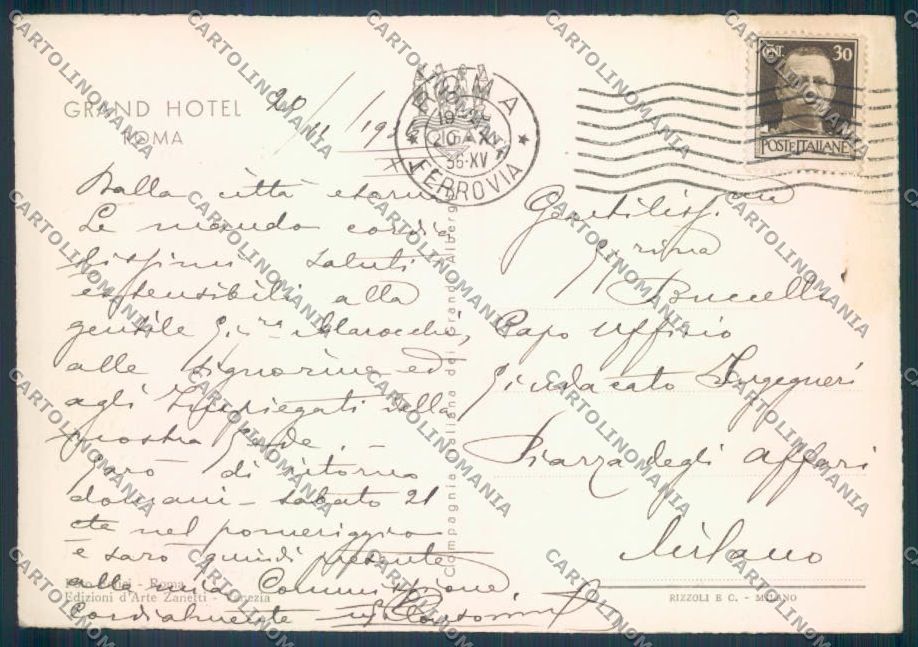 GRAND HOTEL
ROMA
20/11/1936
XV
Dalla città eterna
Le mando cordia
lissimi saluti
estensibili alla
gentile S.na Marocchi,
alle signorine ed
agli Impiegati della
nostra Sede. -
Sarò di ritorno
domani - sabato 21
cte nel pomeriggio
e sarò quindi presente
alla mia Commissione.
Cordialmente
Foto - Roma
Edizioni d'Arte Zanetti - Venezia
Compagnia Italiana dei Grandi Alberghi
ROMA
19-20
20
36-XV
FERROVIA
CENT. 30
POSTE ITALIANE
Gentiliss.ma
S.rina
Buccelli
Capo Ufficio
Sindacato Ingegneri
Piazza degli Affari
Milano
RIZZOLI E C. - MILANO
CARTOLINOMANIA